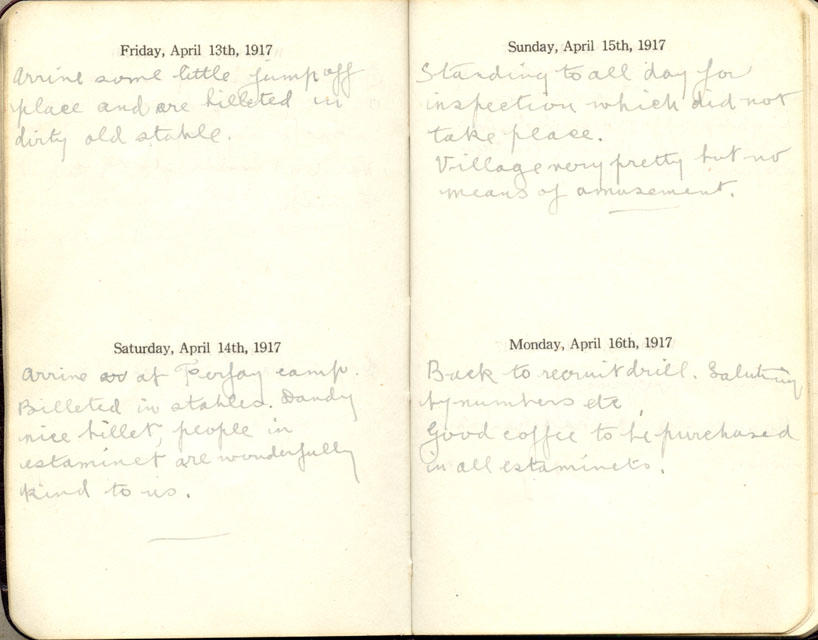 Friday, April 13th, 1917
Arrive some little jump off
place and are billeted in
dirty old stable.
Saturday, April 14th, 1917
Arrive at camp.
Billeted in stables. Dandy
nice billet, people in
estaminet are wonderfully
kind to us.
Sunday, April 15th, 1917
Standing to all day for
inspection which did not
take place.
Village very pretty but no
means of amusement.
Monday, April 16th, 1917
Back to recruit drill. Saluting
by numbers etc.
Good coffee to be purchased
in all estaminets.